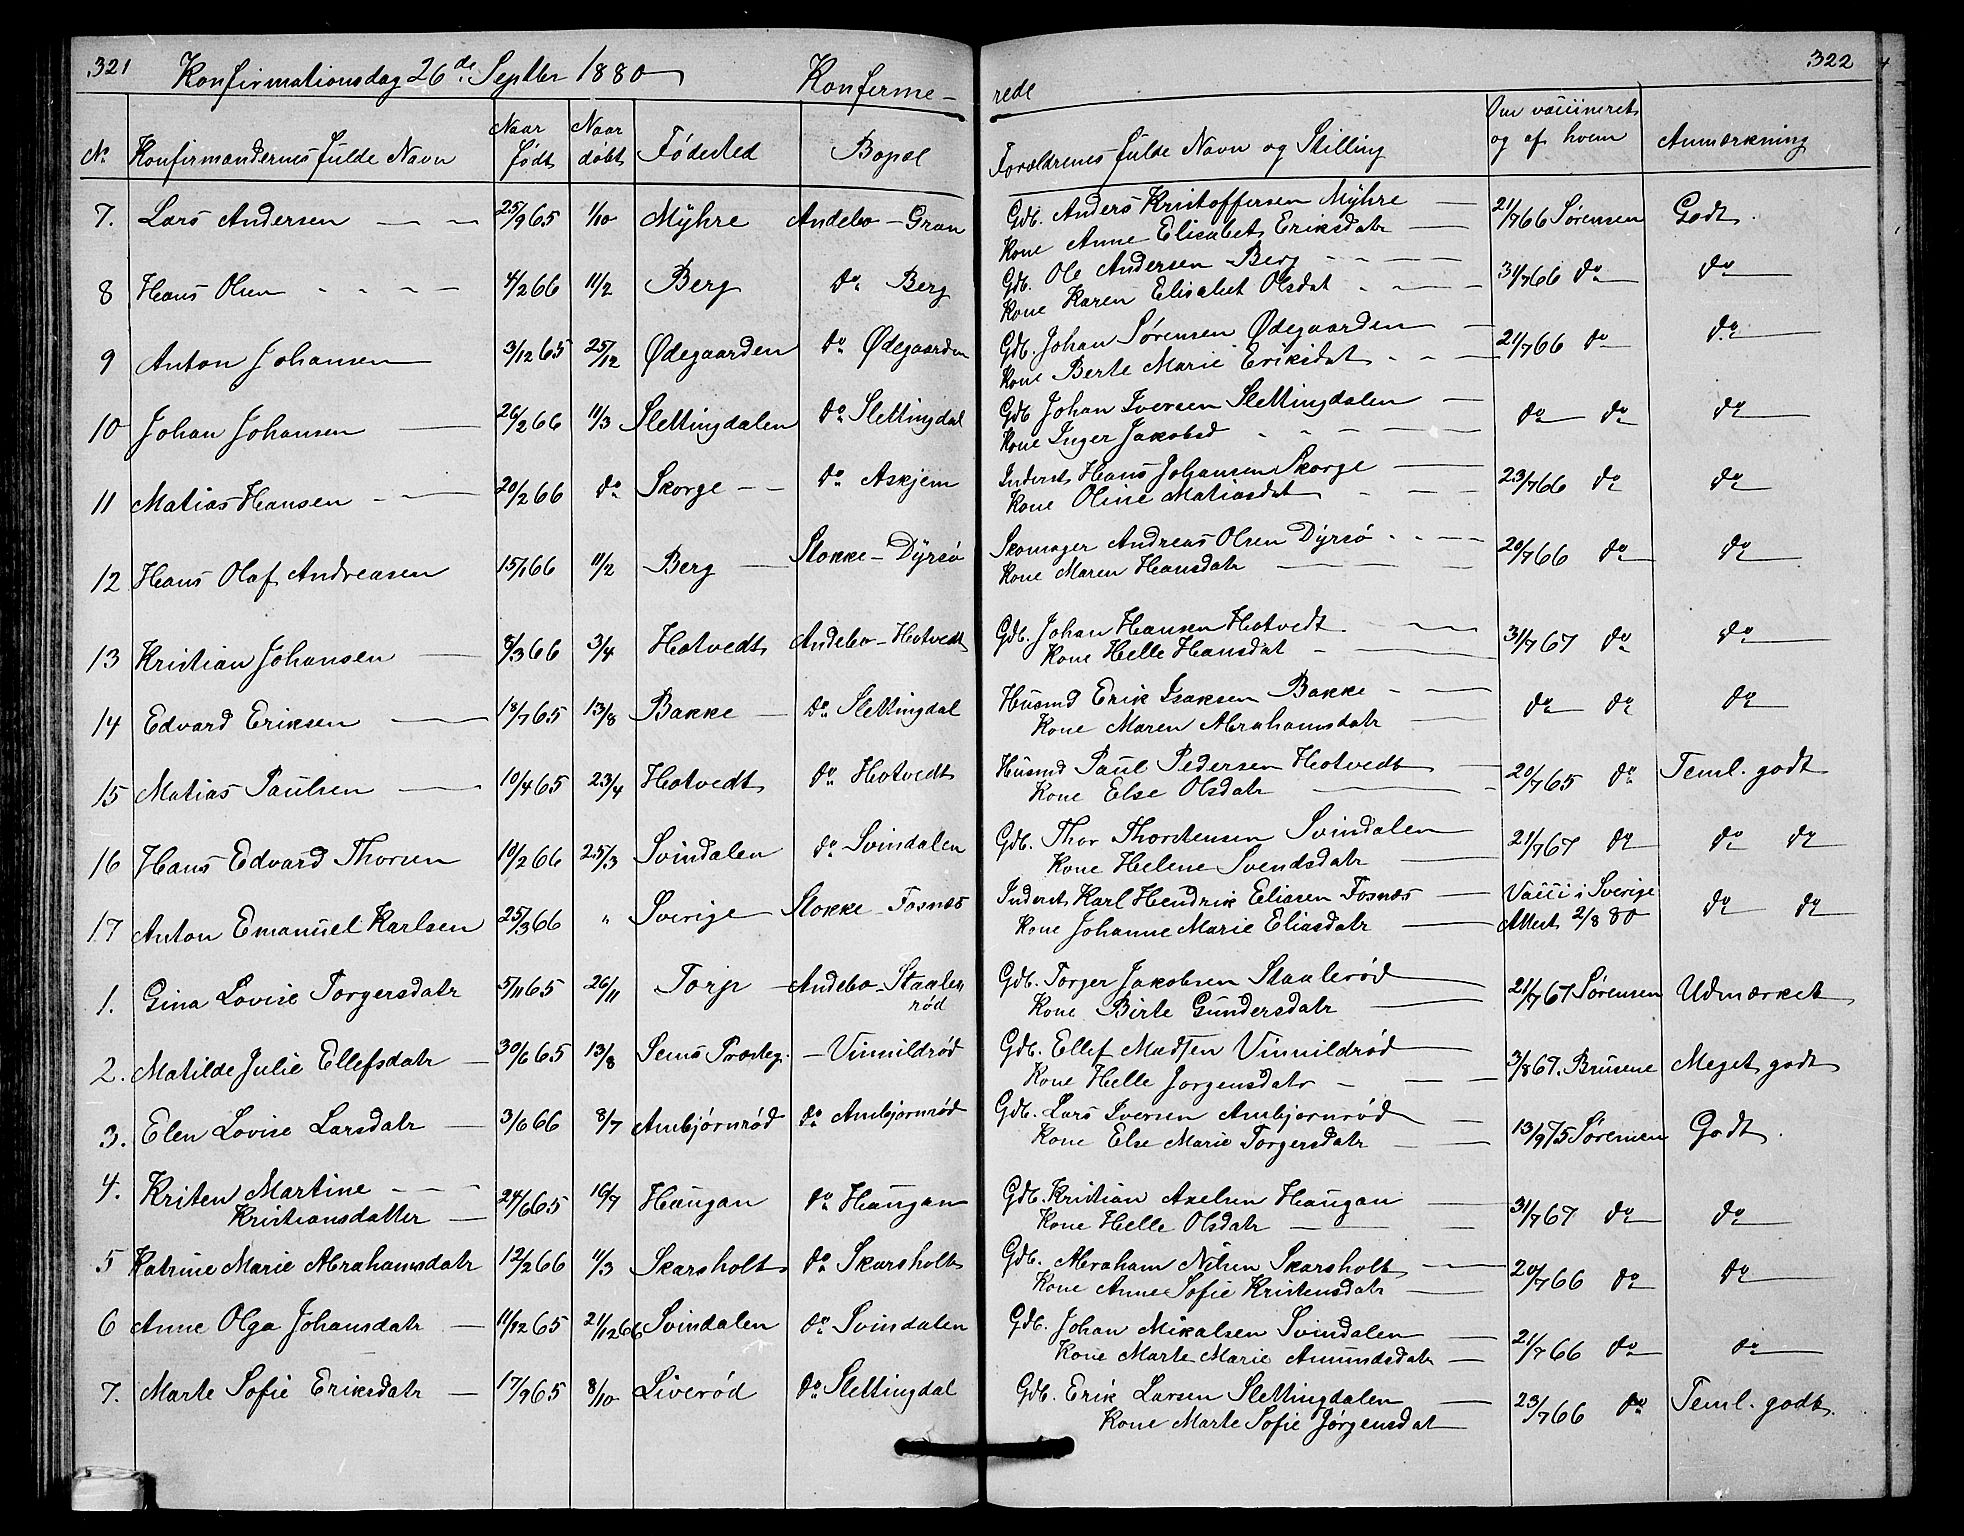 321 Konfirmationsdag 26de Septbr 1880 Konferme- rede 322
No Konfirmandernes fulde Navn Naar født Naar døbt Fødested Bopæl Forældrenes fulde Navn og Stilling Om vaccineret og af hvem Anmærkning
7. Lars Andersen 25/9 65 1/10 Myhre Andebo - Gran Gdb. Anders Kristoffersen Myhre 21/7 66 Sørensen Godt.
Kone Anne Elisabet Eriksdatr
8 Hans Olsen 4/2 66 11/2 Berg do Berg Gdb. Ole Andersen Berg 31/7 66 do do
Kone Karen Elisabet Olsdat
9 Anton Johansen 3/12 65 25/12 Ødegaarden do Ødegaarden Gdb. Johan Sørensen Ødegaarden 21/7 66 do do
Kone Berte Marie Eriksdat
10 Johan Johansen 26/2 66 11/3 Slettingdalen do Slettingdal Gdb Johan Iversen Slettingdalen do do do
Kone Inger Jakobsd
11 Matias Hansen 20/2 66 do Skorge do Askjem Inderst Hans Johansen Skorge 23/7 66 do do
Kone Oline Matiasdat
12 Hans Olaf Andreasen 15/1 66 11/2 Berg Stokke - Dyrsø Skomager Andreas Olsen Dyrsø 20/7 66 do do
Kone Maren Hansdatr
13 Kristian Johansen 8/3 66 3/4 Hotvedt Andebo - Hotvedt Gdb. Johan Hansen Hotvedt 31/7 67 do do
Kone Helle Hansdat
14 Edvard Eriksen 18/7 65 13/8 Bakke do Slettingdal Husmd Erik Isaksen Bakke do do do
Kone Maren Abrahamsdatr
15 Matias Paulsen 10/4 65 23/4 Hotvedt do Hotvedt Husmd Paul Pedersen Hotvedt 20/7 65 do Teml. godt
Kone Else Olsdatr
16 Hans Edvard Thorsen 10/2 66 25/3 Svindalen do Svindalen Gdb. Thor Thorstensen Svindalen 21/7 67 do do do
Kone Helene Svendsdatr
17 Anton Emanuel Karlsen 25/3 66 " Sverige Stokke - Fosnæs Inderst Karl Hendrik Eliasen Fosnæs Vacci i Sverige do do
Kone Johanne Marie Eliasdatr Attest 2/8 80
1. Gina Lovise Torgersdatr 5/11 65 26/11 Torp Andebo - Staale- Gdb. Torger Jakobsen Staalerød 21/7 67 Sørensen Udmærket
rød Kone Birte Gundersdatr
2. Matilde Julie Ellefsdatr 30/6 65 13/8 Sems Præsteg. - Vinnildrød Gdb. Ellef Madsen Vinnildrød 3/8 67. Brusene Meget godt
Kone Helle Jørgensdatr
3. Elen Lovise Larsdatr 3/6 66 8/7 Ambjørnrød do Ambjørnrød Gdb. Lars Iversen Ambjørnrød 13/9 75 Sørensen Godt.
Kone Else Marie Torgersdatr
4. Kristen Martine 24/6 65 16/7 Haugan do Haugan Gdb. Kristian Axelsen Haugan 31/7 67 do do
Kristiansdatter Kone Helle Olsdatr
5 Katrine Marie Abrahamsdatr 12/2 66 11/3 Skarsholt do Skarsholt Gdb. Abraham Nilsen Skarsholt 20/7 66 do do
Kone Anne Sofie Kristensdatr
6 Anne Olga Johansdatr 11/12 65 21/12 66 Svindalen do Svindalen Gdb. Johan Mikalsen Svindalen 21/7 66 do do
Kone Marte Marie Amundsdatr
7. Marte Sofie Eriksdatr 17/9 65 8/10 Liverød do Slettingdal Gdb. Erik Larsen Slettingdalen 23/7 66 do Teml. godt.
Kone Marte Sofie Jørgensdat